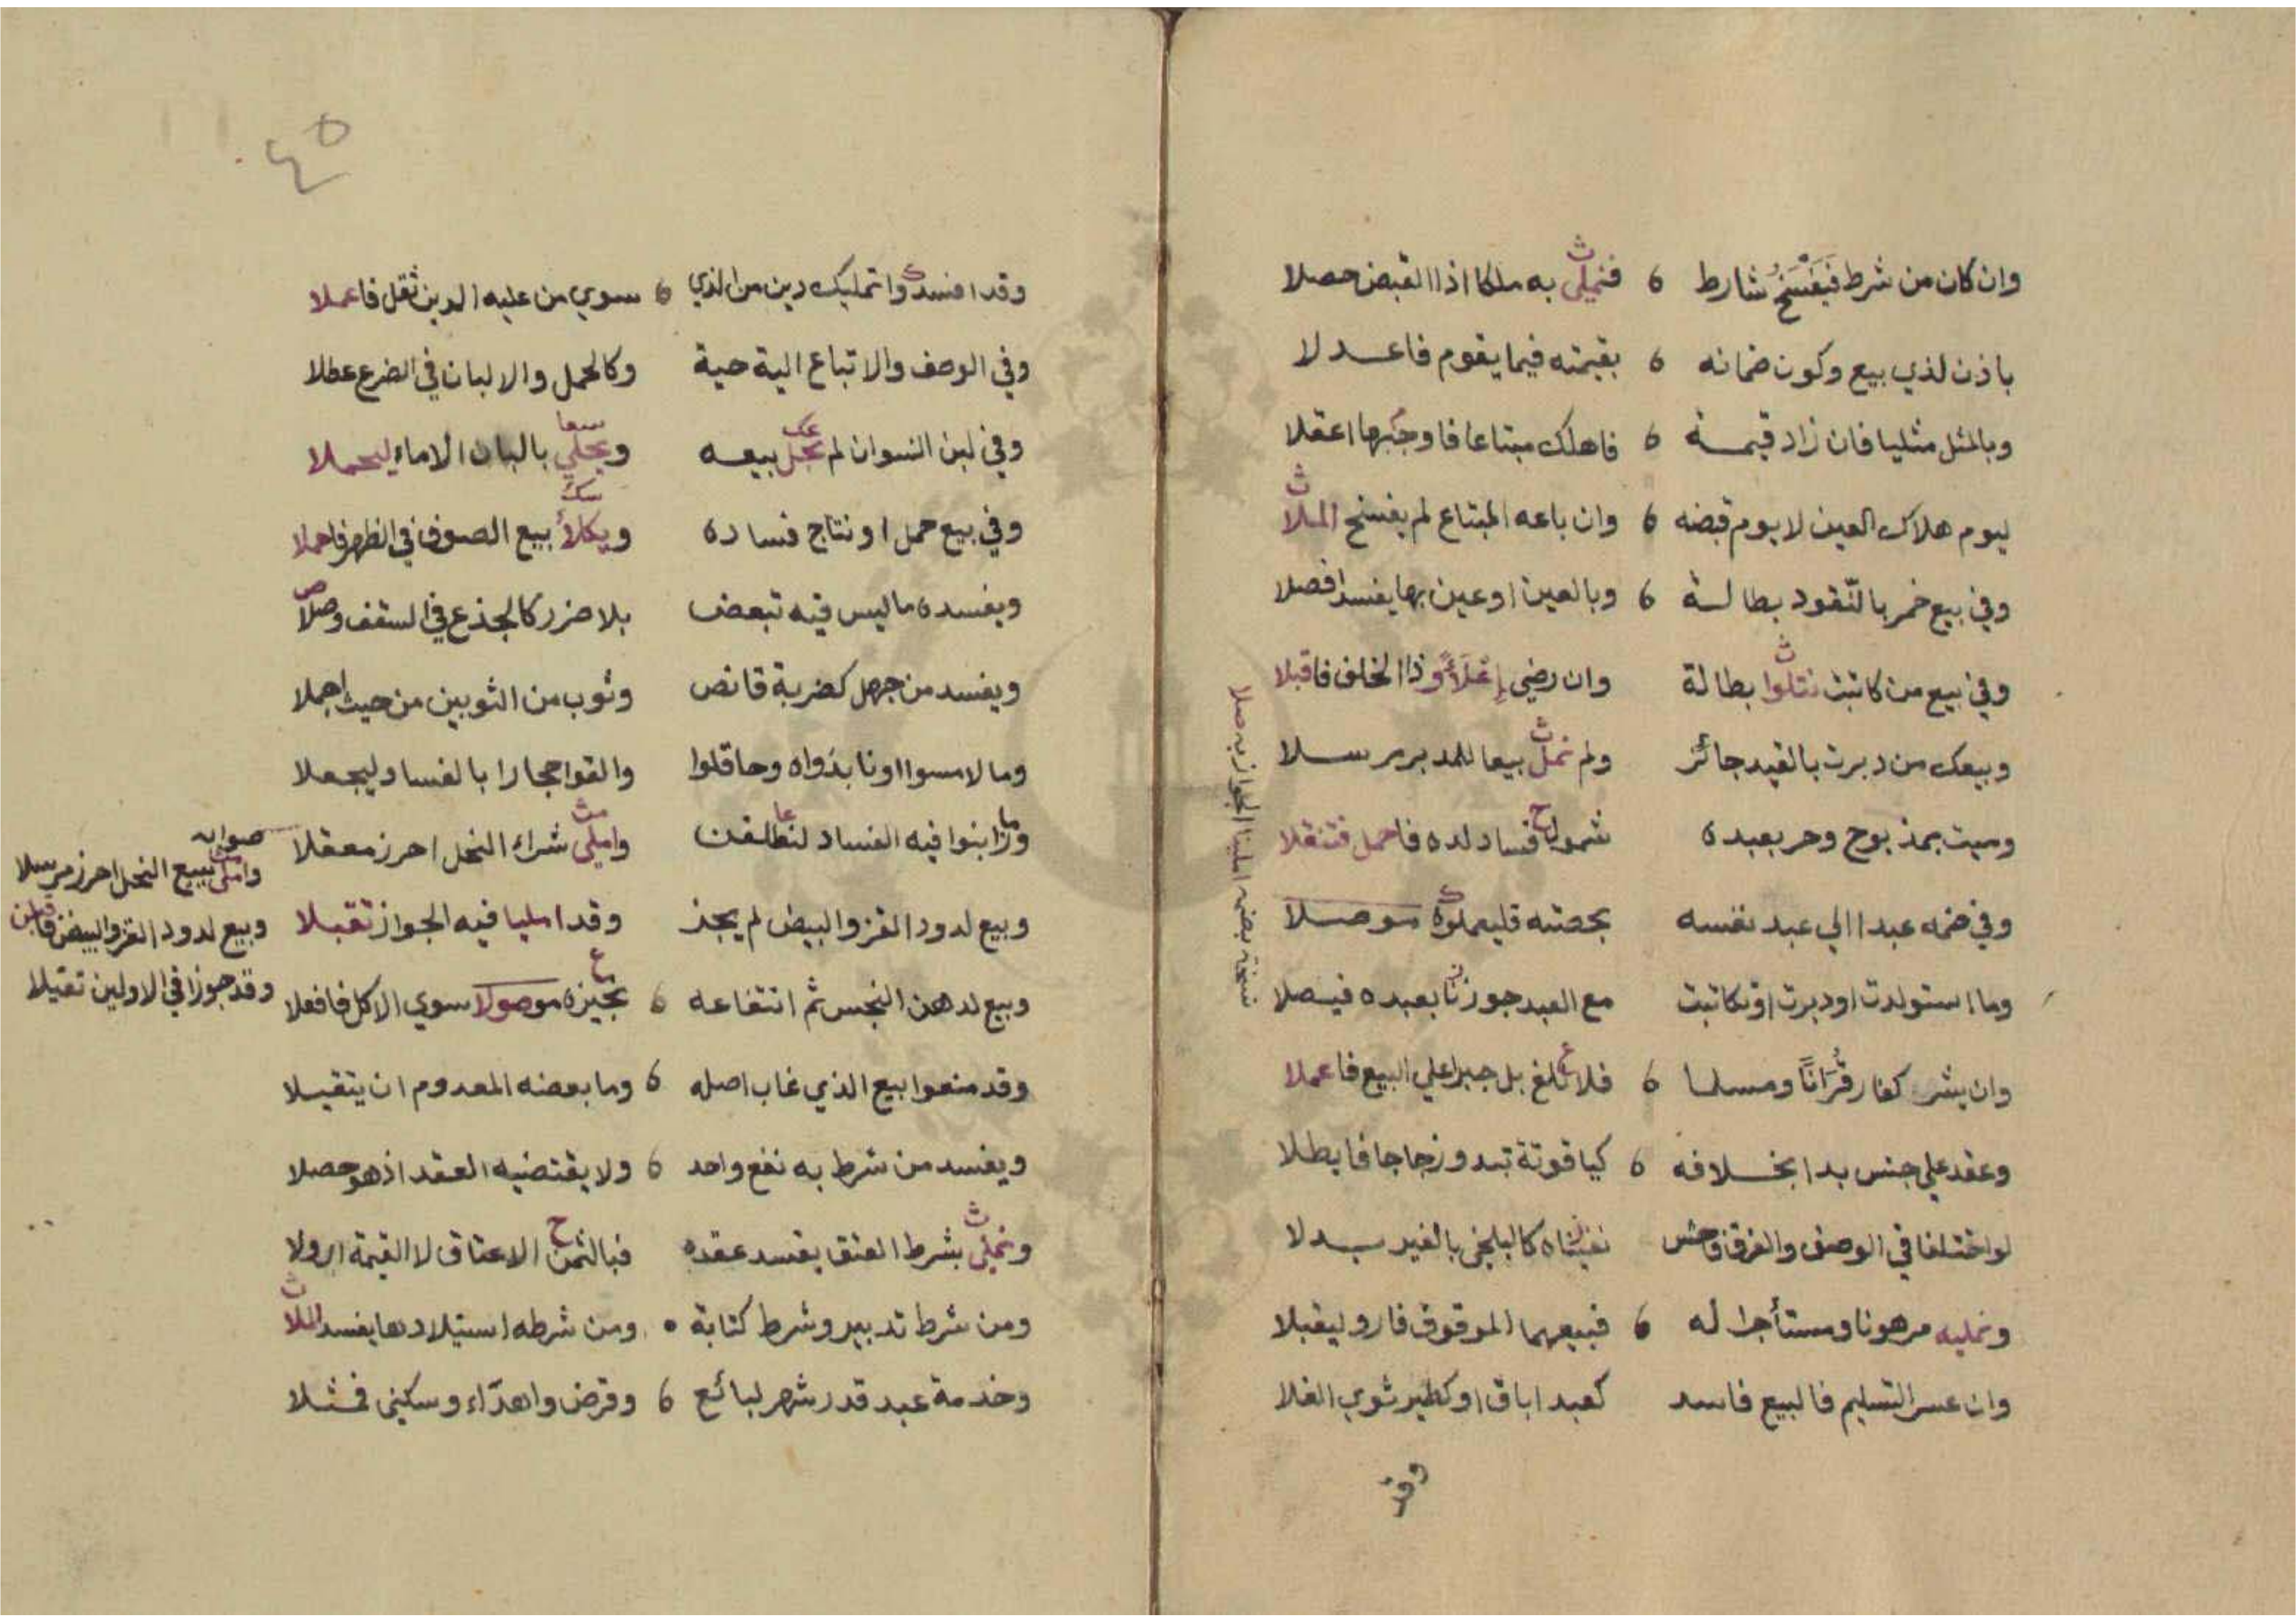 وان كان من شرط فَيَفْسَخُ شارط ٦ فنملي به ملكا اذا القبض حصلا
باذن لذي بيع وكون ضمانه ٦ بقيمته فيما يقوم فاعدلا
وبالمثل مثليا فان زاد قيمة ٦ فاهلك مبتاعا فاوجبها اعقلا
ليوم هلاك العين لا يوم قبضه ٦ وان باعه المبتاع لم يفسخ الملا
وفي بيع خمر بالنّقود بطالة ٦ وبالعين او عين بها يفسد افصلا
وفي بيع من كاتبت نتلوا بطالة وان رضي وذا الخلف فاقبلا
وبيعك من دبرت بالقيد جائز ولم نمل بيعا للمدبر مرسلا
وميت بمذبوح وحر بعبده شمول فساد لده فاحمل فتنقلا
وفي ضمه عبدا الي عبد نفسه بحصته موصلا
وما استولدت او دبرت او تكاتبت مع العبد جوزنا بعبده فيصلا
وان يشر كفار قُرَانًا ومسلما ٦ فلا تلغ بل جبرا علي البيع فاعملا
وعقد علي جنس بدا بخلافه ٦ كياقوتة تبدو زجاجا فابطلا
لو اختلفا في الوصف والفرق فاحش كالبلخي بالغير بدلا
ونمليه مرهونا ومستأجرا له ٦ فبيعهما الموقوف فارو ليقبلا
وان عسر التسليم فالبيع فاسد كعبد اباق او كطير ثوي الفلا
وقد
نسخة بعضه املينا الجواز به صلا
٤٥
وقد افسدوا تمليك دين من الذي ٦ سوي من عليه الدين ثقل فاعملا
وفي الوصف والاتباع الية حية وكالحمل والالبان في الضرع عطلا
وفي لبن النسوان لم نجل بيعه ويجلي بالبان الاماء ليحملا
وفي بيع حمل او نتاج فساده ويكلأ بيع الصوف في الظهر فاحملا
ويفسده ما ليس فيه تبعض بلا ضرر كالجذع في السقف وصلا
ويفسد من جهل كضربة قانص وثوب من الثوبين من حيث اجملا
وما لامسوا او نابذواه وحاقلوا والقوا حجارا بالفساد ليجعلا
وما زابنوا فيه الفساد لنطلقن واملي شراء النحل احرز معقلا
وبيع لدود القز والبيض لم يجز وقد امليا فيه الجواز تقبلا
وبيع لدهن النجس ثم انتفاعه ٦ نجيزه موصولا سوي الاكل فافعلا
وقد منعوا بيع الذي غاب اصله ٦ وما بعضه المعدوم ان يتقبلا
ويفسد من شرط به نفع واحد ٦ ولا يقتضيه العقد اذ هو حصلا
ونملي بشرط العتق يفسد عقده فبالثمن الاعتاق لا القيمة
ومن شرط تدبير وشرط كتابة ٥ ومن شرطه استيلادها يفسد الملا
وخدمة عبد قدر شهر لبائع ٦ وقرض واهدّاء وسكني فمثلا
صوابه
واملي ببيع النحل احرز مرسلا
وبيع لدود القز والبيض
وقد جوزا في الاولين تقبلا